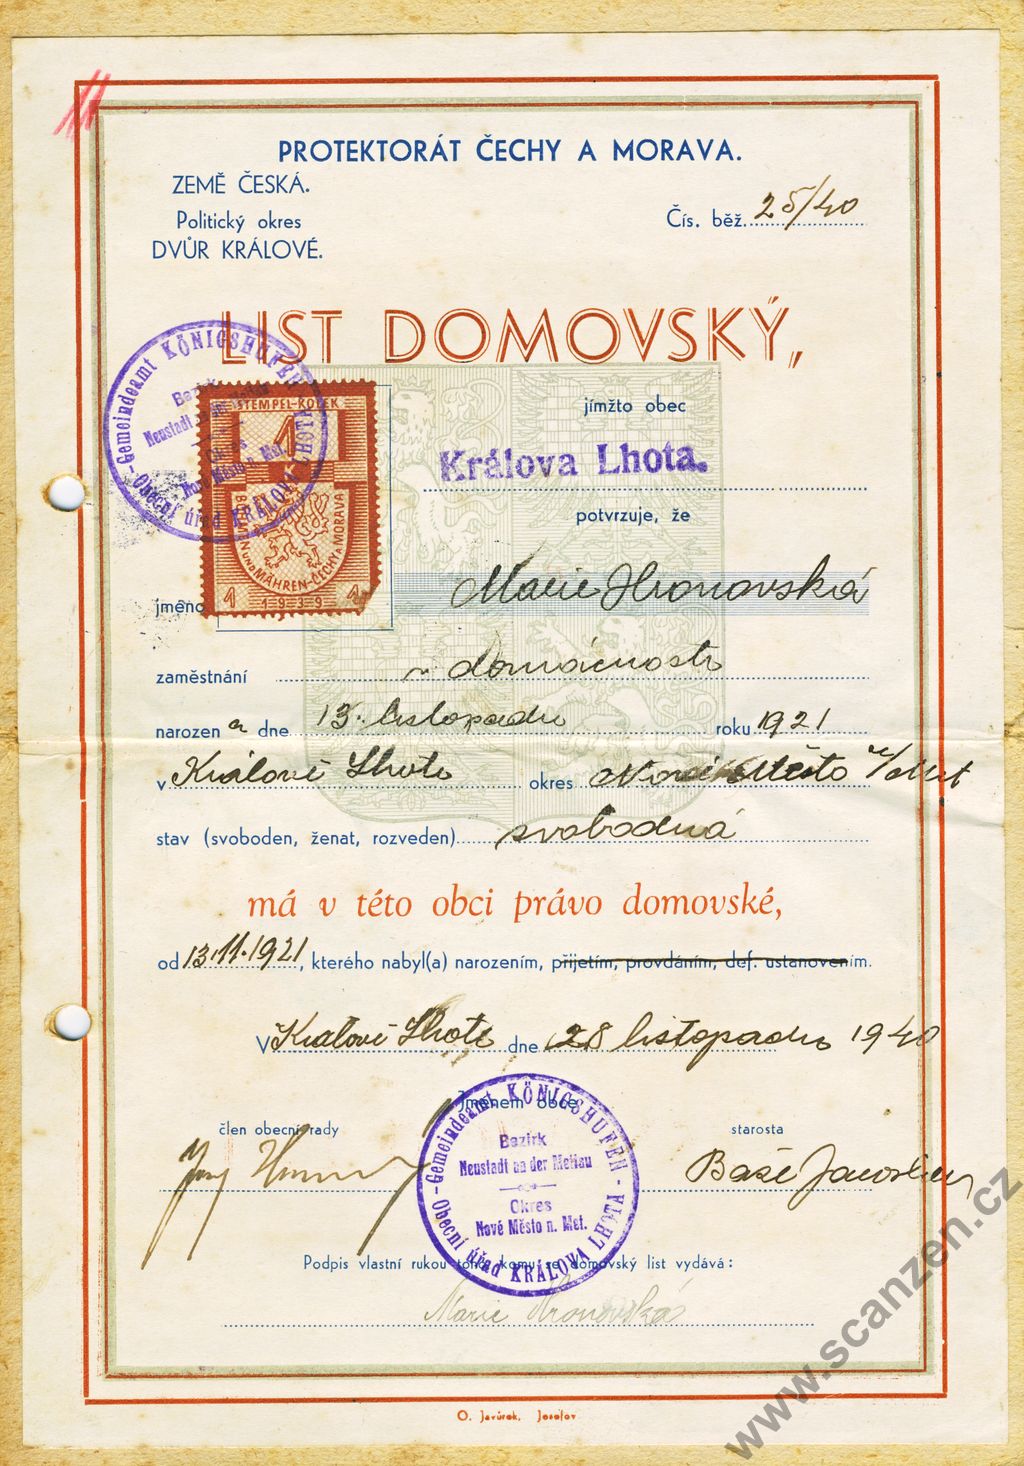 PROTEKTORÁT ČECHY A MORAVA.
ZEMĚ ČESKÁ.
Politický okres
DVŮR KRÁLOVÉ.
Čís. běž. 25/40
LIST DOMOVSKÝ,
Gemeindeamt KÖNIGSHUFEN
Bezirk
Neustadt an der Mettau
Okres
Nové Město n. Met.
Obecní úřad KRÁLOVA LHOTA
STEMPEL-KOLEK
1
BÖHMEN UND MÄHREN-ČECHY A MORAVA
1 1939 1
jímžto obec
Králova Lhota.
potvrzuje, že
jméno Marie Hronovská
zaměstnání v domácnosti
narozen a dne 13. listopadu roku 1921
v Králově Lhotě okres Nové Město n/Met
stav (svoboden, ženat, rozveden) svobodná
má v této obci právo domovské,
od 13.11.1921, kterého nabyl(a) narozením, přijetím, provdáním, def. ustanovením.
V Králově Lhotě dne 28 listopadu 1940
Jménem obce
člen obecní rady
starosta
Gemeindeamt KÖNIGSHUFEN
Bezirk
Neustadt an der Mettau
Okres
Nové Město n. Met.
Obecní úřad KRÁLOVA LHOTA
Baše Jaroslav
Podpis vlastní rukou toho, komu se domovský list vydává:
Marie Hronovská
O. Javůrek, Josefov
www.scanzen.cz